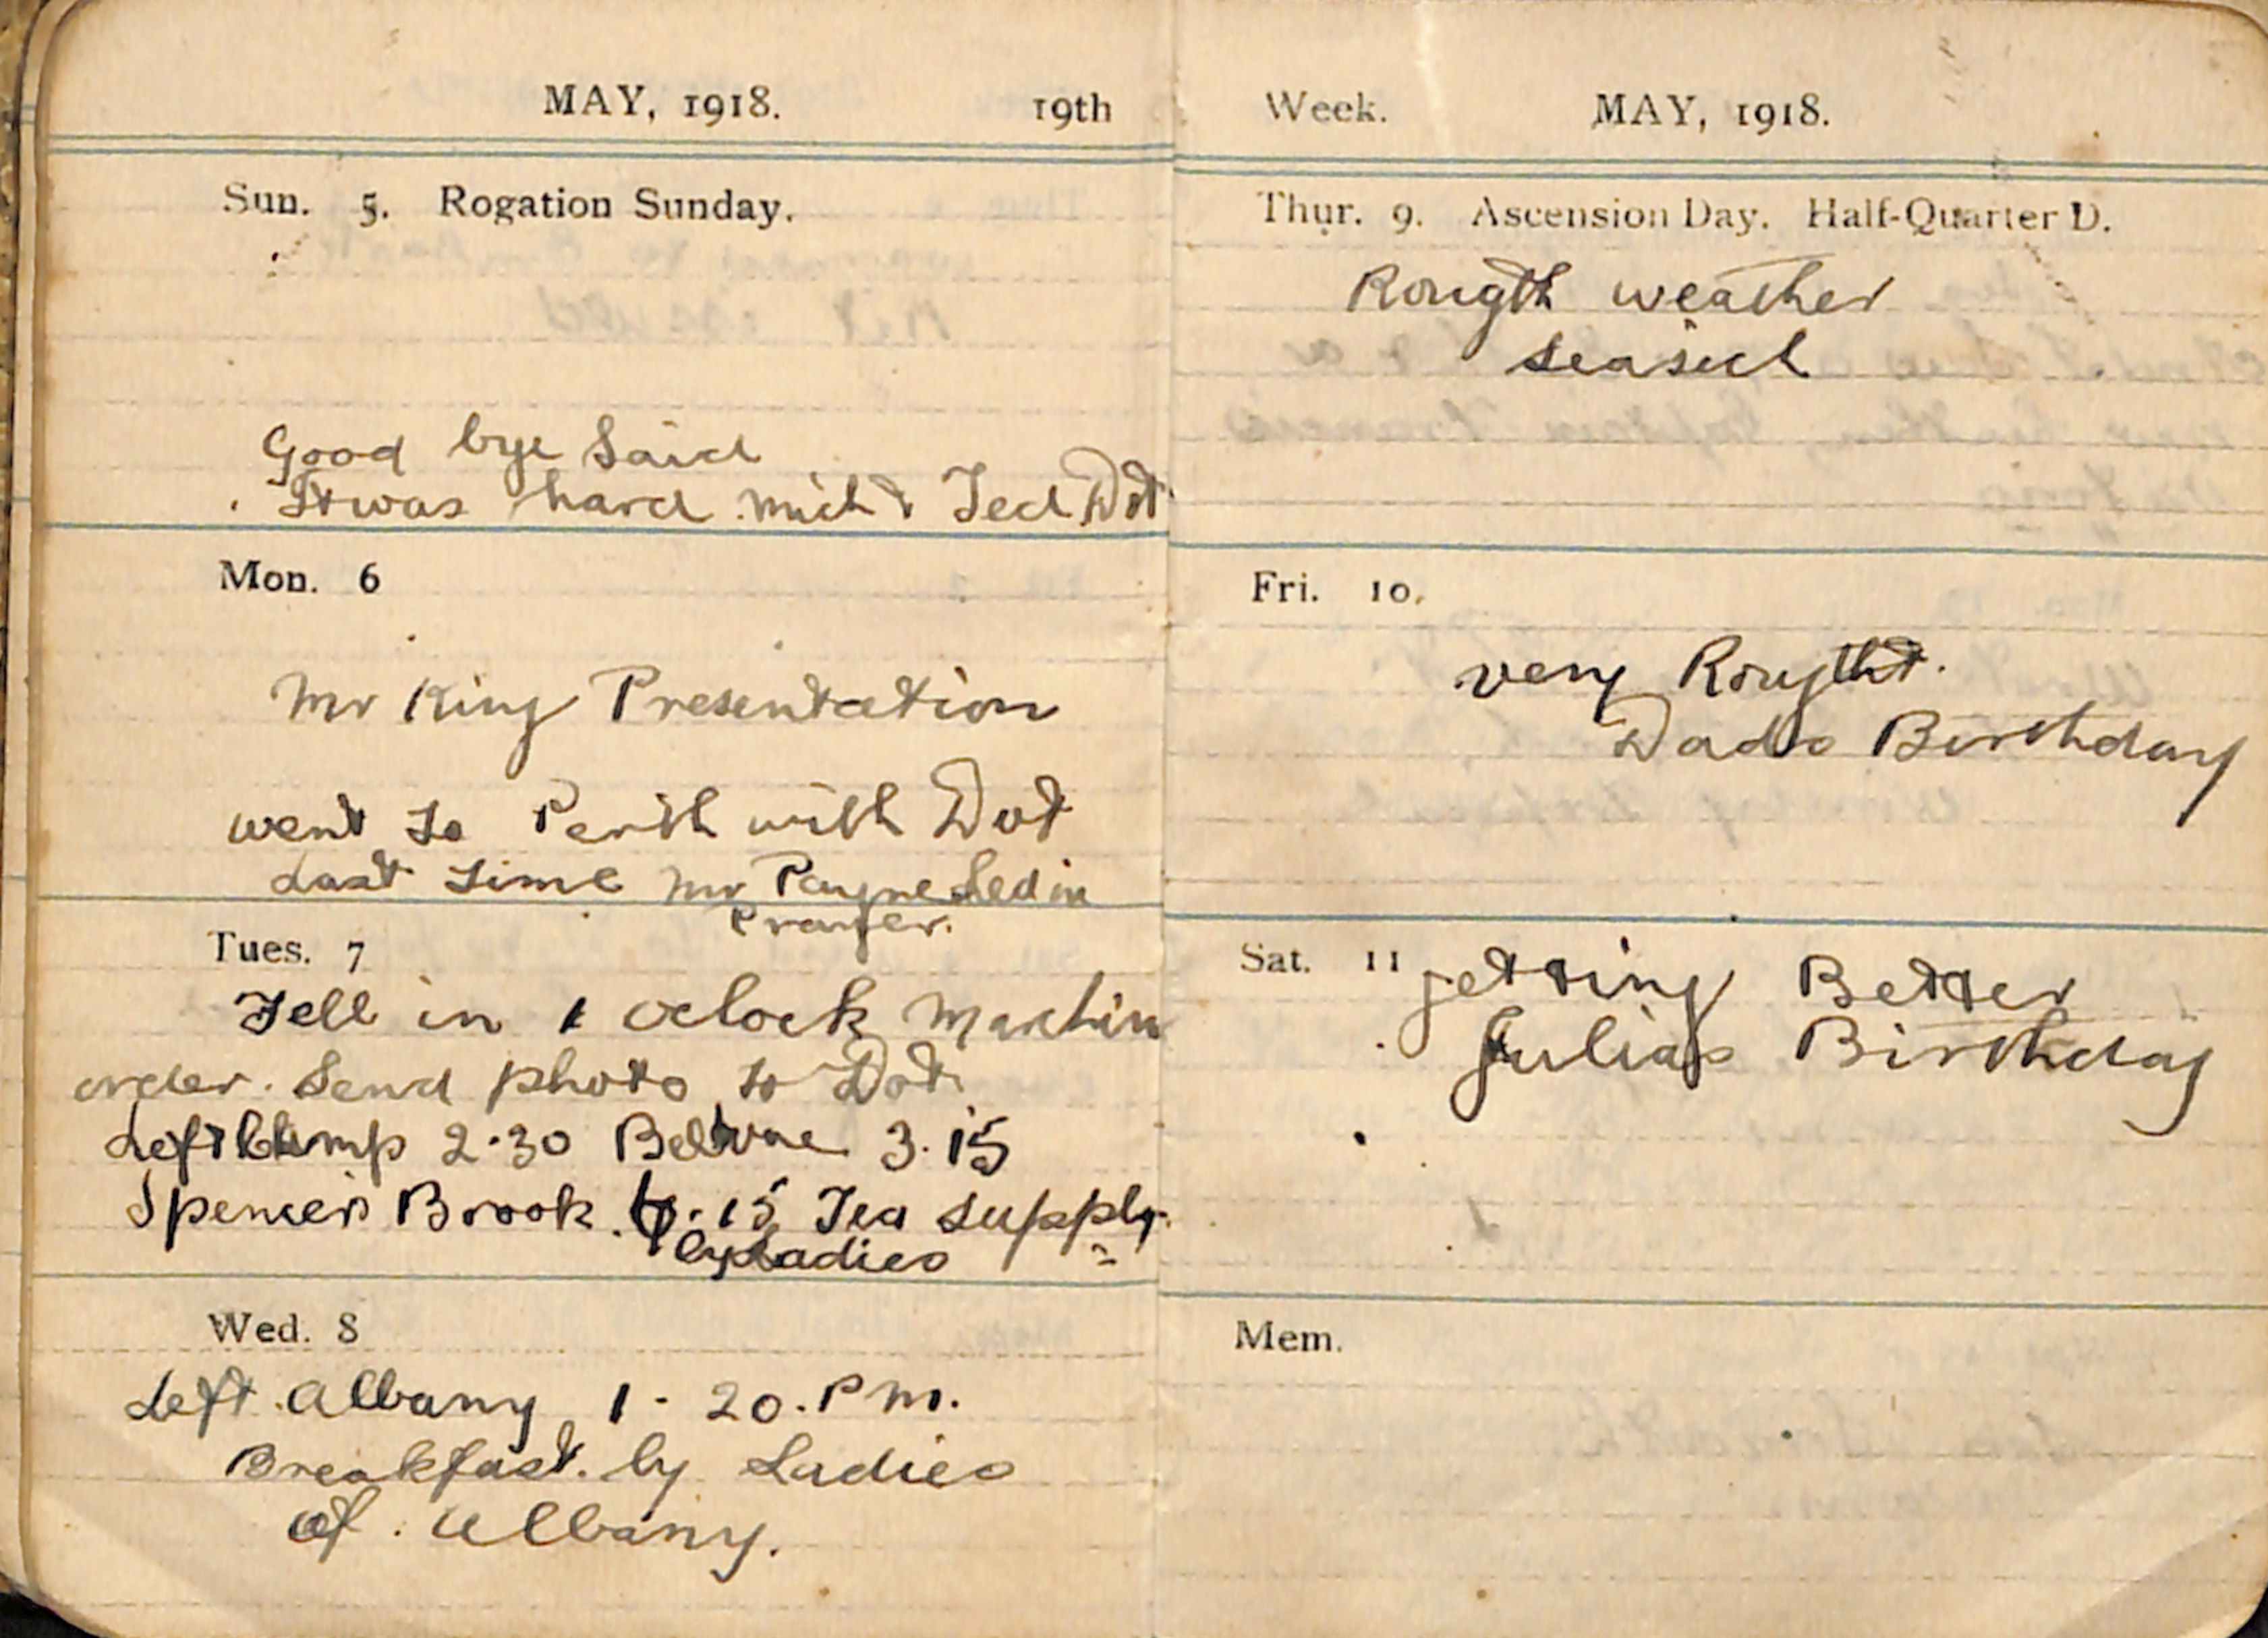 MAY, 1918. 19th
Sun. 5. Rogation Sunday.
Good bye Said
It was hard. Ted Dot
Mon. 6
Mr King Presentation
went to Perth with Dot
Last time Mr Payne Led in
Prayer.
Tues. 7
Fell in 1 oclock Marchin
order. Send photo to Dot.
Left Camp 2.30 3.15
Spencers Brook. .15 Tea supply
by Ladies
Wed. 8
Left Albany 1 - 20. P m.
Breakfast. by Ladies
of. Albany.
Week. MAY, 1918.
Thur. 9. Ascension Day. Half-Quarter D.
Rougth weather
seasick
Fri. 10.
very Rougtht.
Dads Birthday
Sat. 11 getting Better
Julias Birthday
Mem.